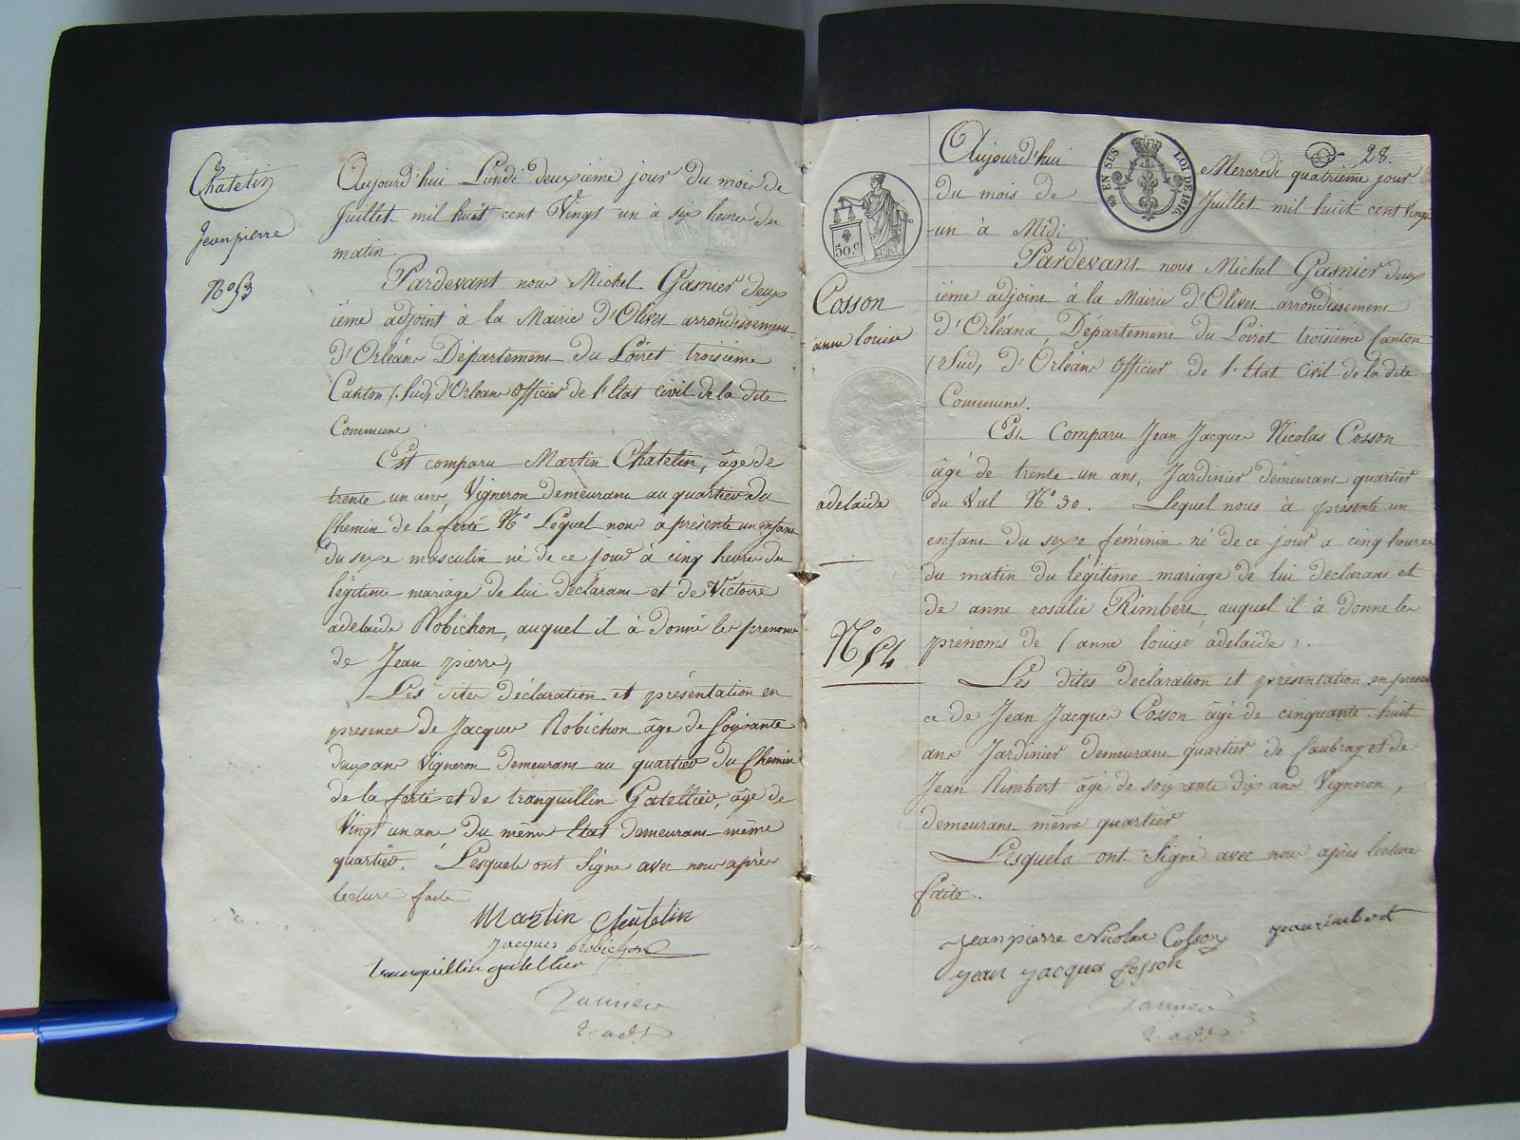 Chatelin
Jean pierre
N° 53
Aujourd'hui Lundi deuxieme jour du mois de
Juillet mil huit cent Vingt un à six heures du
matin
Pardevant nous Michel Gasnier deux
ième adjoint à la Mairie d'Olivet arrondissement
d'Orléans Département du Loiret troisième
Canton (Sud) d'Orléans officier de l'Etat civil de la dite
Commune
Est comparu Martin Chatelin, âgé de
trente un ans, Vigneron demeurant au quartier du
Chemin de la ferté N° Lequel nous à présenté un enfant
du sexe masculin né de ce jour à cinq heures du
légitime mariage de lui déclarant et de Victoire
adelaïde Robichon, auquel il à donné les prenoms
de Jean pierre,
Les dites déclaration et présentation en
presence de Jacques Robichon âgé de Soixante
deux ans Vigneron demeurant au quartier du Chemin
de la ferté et de tranquillin Gatellier, âgé de
Vingt un ans du même Etat demeurant même
quartier. Lesquels ont Signé avec nous après
lecture faite
Martin Chatelin
Jacques Robichon
tranquillin gatellier
Gasnier
2e adjt
28.
EN SUS
LOI DE 1816
50 c
Cosson
anne louise
adelaïde
N° 54
Aujourd'hui Mercredi quatrième jour
du mois de Juillet mil huit cent Vingt
un à Midi
Pardevant nous Michel Gasnier deux
ième adjoint à la Mairie d'Olivet arrondissement
d'Orléans Département du Loiret troisième Canton
(Sud) d'Orléans officier de l'Etat Civil de la dite
Commune.
Est Comparu Jean Jacques Nicolas Cosson
âgé de trente un ans, Jardinier démeurant quartier
du Val N° 30. Lequel nous à presenté un
enfant du sexe féminin né de ce jour a cinq heures
du matin du légitime mariage de lui declarant et
de anne rosalie Rimbert auquel il à donné les
prénoms de (anne louise adelaïde).
Les dites declaration et presentation en presen
ce de Jean Jacques Cosson âgé de cinquante huit
ans Jardinier demeurant quartier de Caubray et de
Jean Rimbert âgé de soixante dix ans Vigneron,
demeurant même quartier
Lesquels ont Signé avec nous après lecture
faite.
Jean pierre Nicolas Cosson jean rimbert
jean jacques Cosson
Gasnier
2e adjt